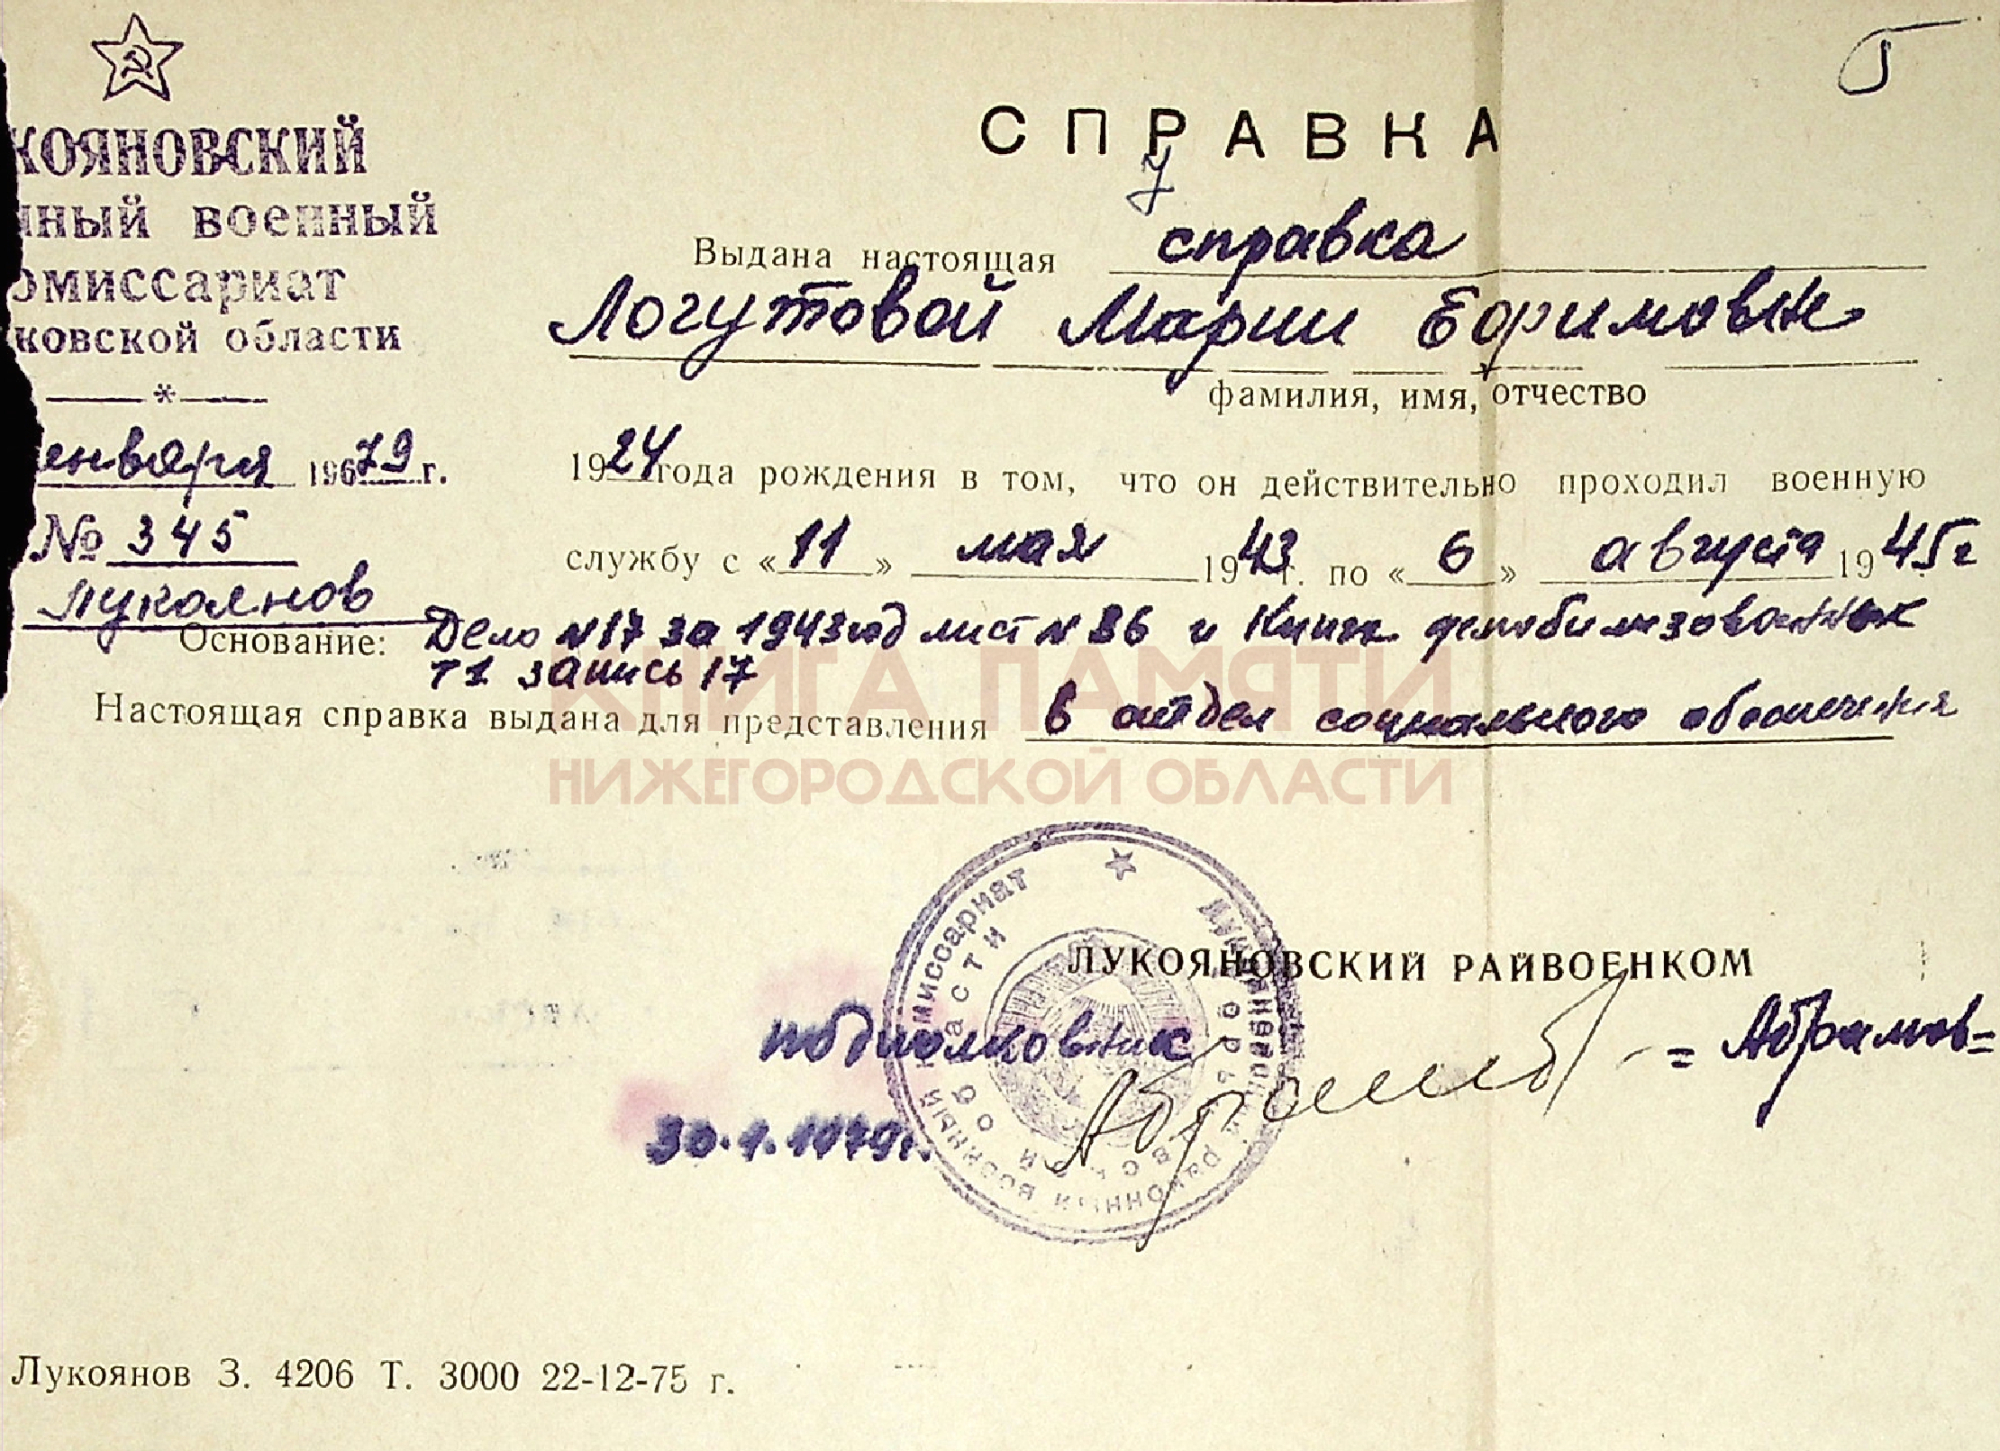 КОЯНОВСКИЙ
ный военный
омиссариат
ковской области
*
января 19679 г.
№ 345
Лукоянов
СПРАВКА
Выдана настоящая справка
Логутовой Марии Ефимовне
фамилия, имя, отчество
1924 года рождения в том, что он действительно проходил военную
службу с «11» мая 1943 г. по «6» августа 1945 г
Основание: Дело №17 за 1943 год лист №86 и Книга демобилизованных
т 1 запись 17
Настоящая справка выдана для представления в отдел социального обеспечения
КНИГА ПАМЯТИ
НИЖЕГОРОДСКОЙ ОБЛАСТИ
ЛУКОЯНОВСКИЙ РАЙВОЕНКОМ
подполковник Абрамов = Абрамов =
30.1.1979г.
Лукояновский районный военный комиссариат
Горьковской области
Лукоянов З. 4206 Т. 3000 22-12-75 г.